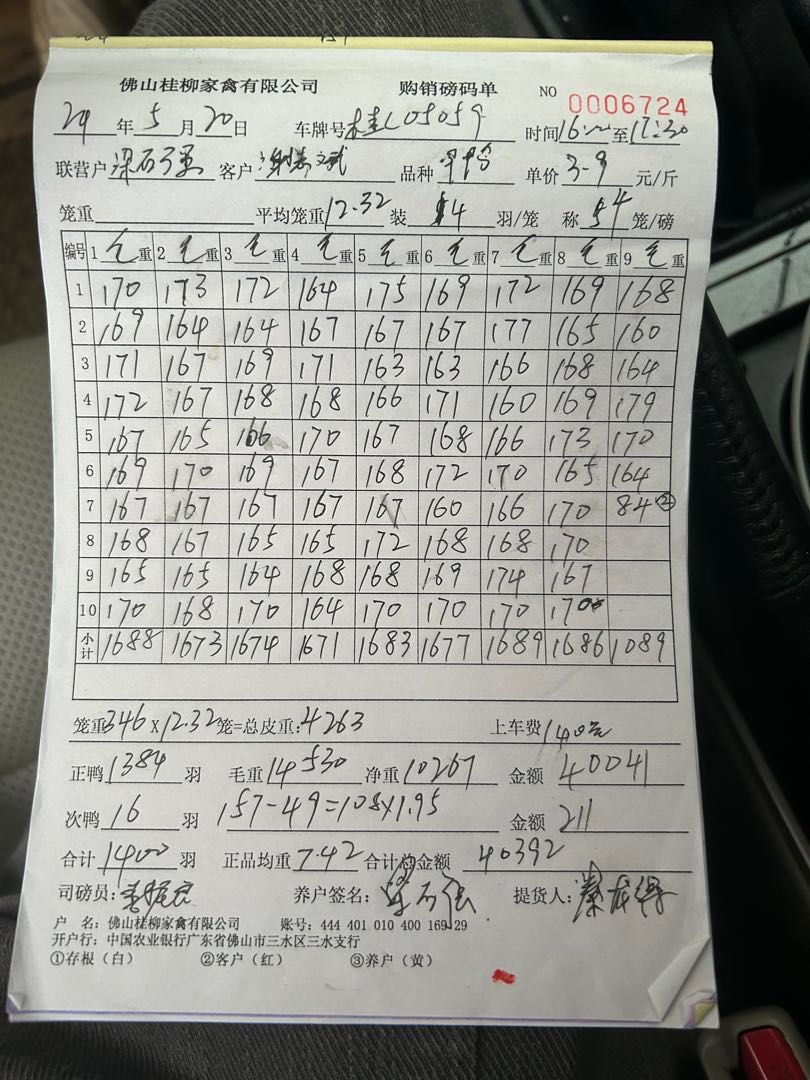 佛山桂柳家禽有限公司 购销磅码单 NO 0006724
24 年 5 月 20 日 车牌号 桂L05059 时间 16: 至 17:30
联营户 客户 品种 单价 3.9 元/斤
笼重 平均笼重 12.32 装 4 羽/笼 称 54 笼/磅
编号 1 毛重 2 毛重 3 毛重 4 毛重 5 毛重 6 毛重 7 毛重 8 毛重 9 毛重
1 170 173 172 164 175 169 172 169 168
2 169 164 164 167 167 167 177 165 160
3 171 167 169 171 163 163 166 168 164
4 172 167 168 168 166 171 160 169 179
5 167 165 166 170 167 168 166 173 170
6 169 170 169 167 168 172 170 165 164
7 167 167 167 167 167 160 166 170 84②
8 168 167 165 165 172 168 168 170
9 165 165 164 168 168 169 174 167
10 170 168 170 164 170 170 170 170
小计 1688 1673 1674 1671 1683 1677 1689 1686 1089
笼重 346 x 12.32 笼=总皮重: 4263 上车费 140元
正鸭 1384 羽 毛重 14530 净重 10267 金额 40041
次鸭 16 羽 157-49=108x1.95 金额 211
合计 1400 羽 正品均重 7.42 合计总金额 40392
司磅员: 养户签名: 提货人:
户 名: 佛山桂柳家禽有限公司 账号: 444 401 010 400 169 29
开户行: 中国农业银行广东省佛山市三水区三水支行
①存根（白） ②客户（红） ③养户（黄）